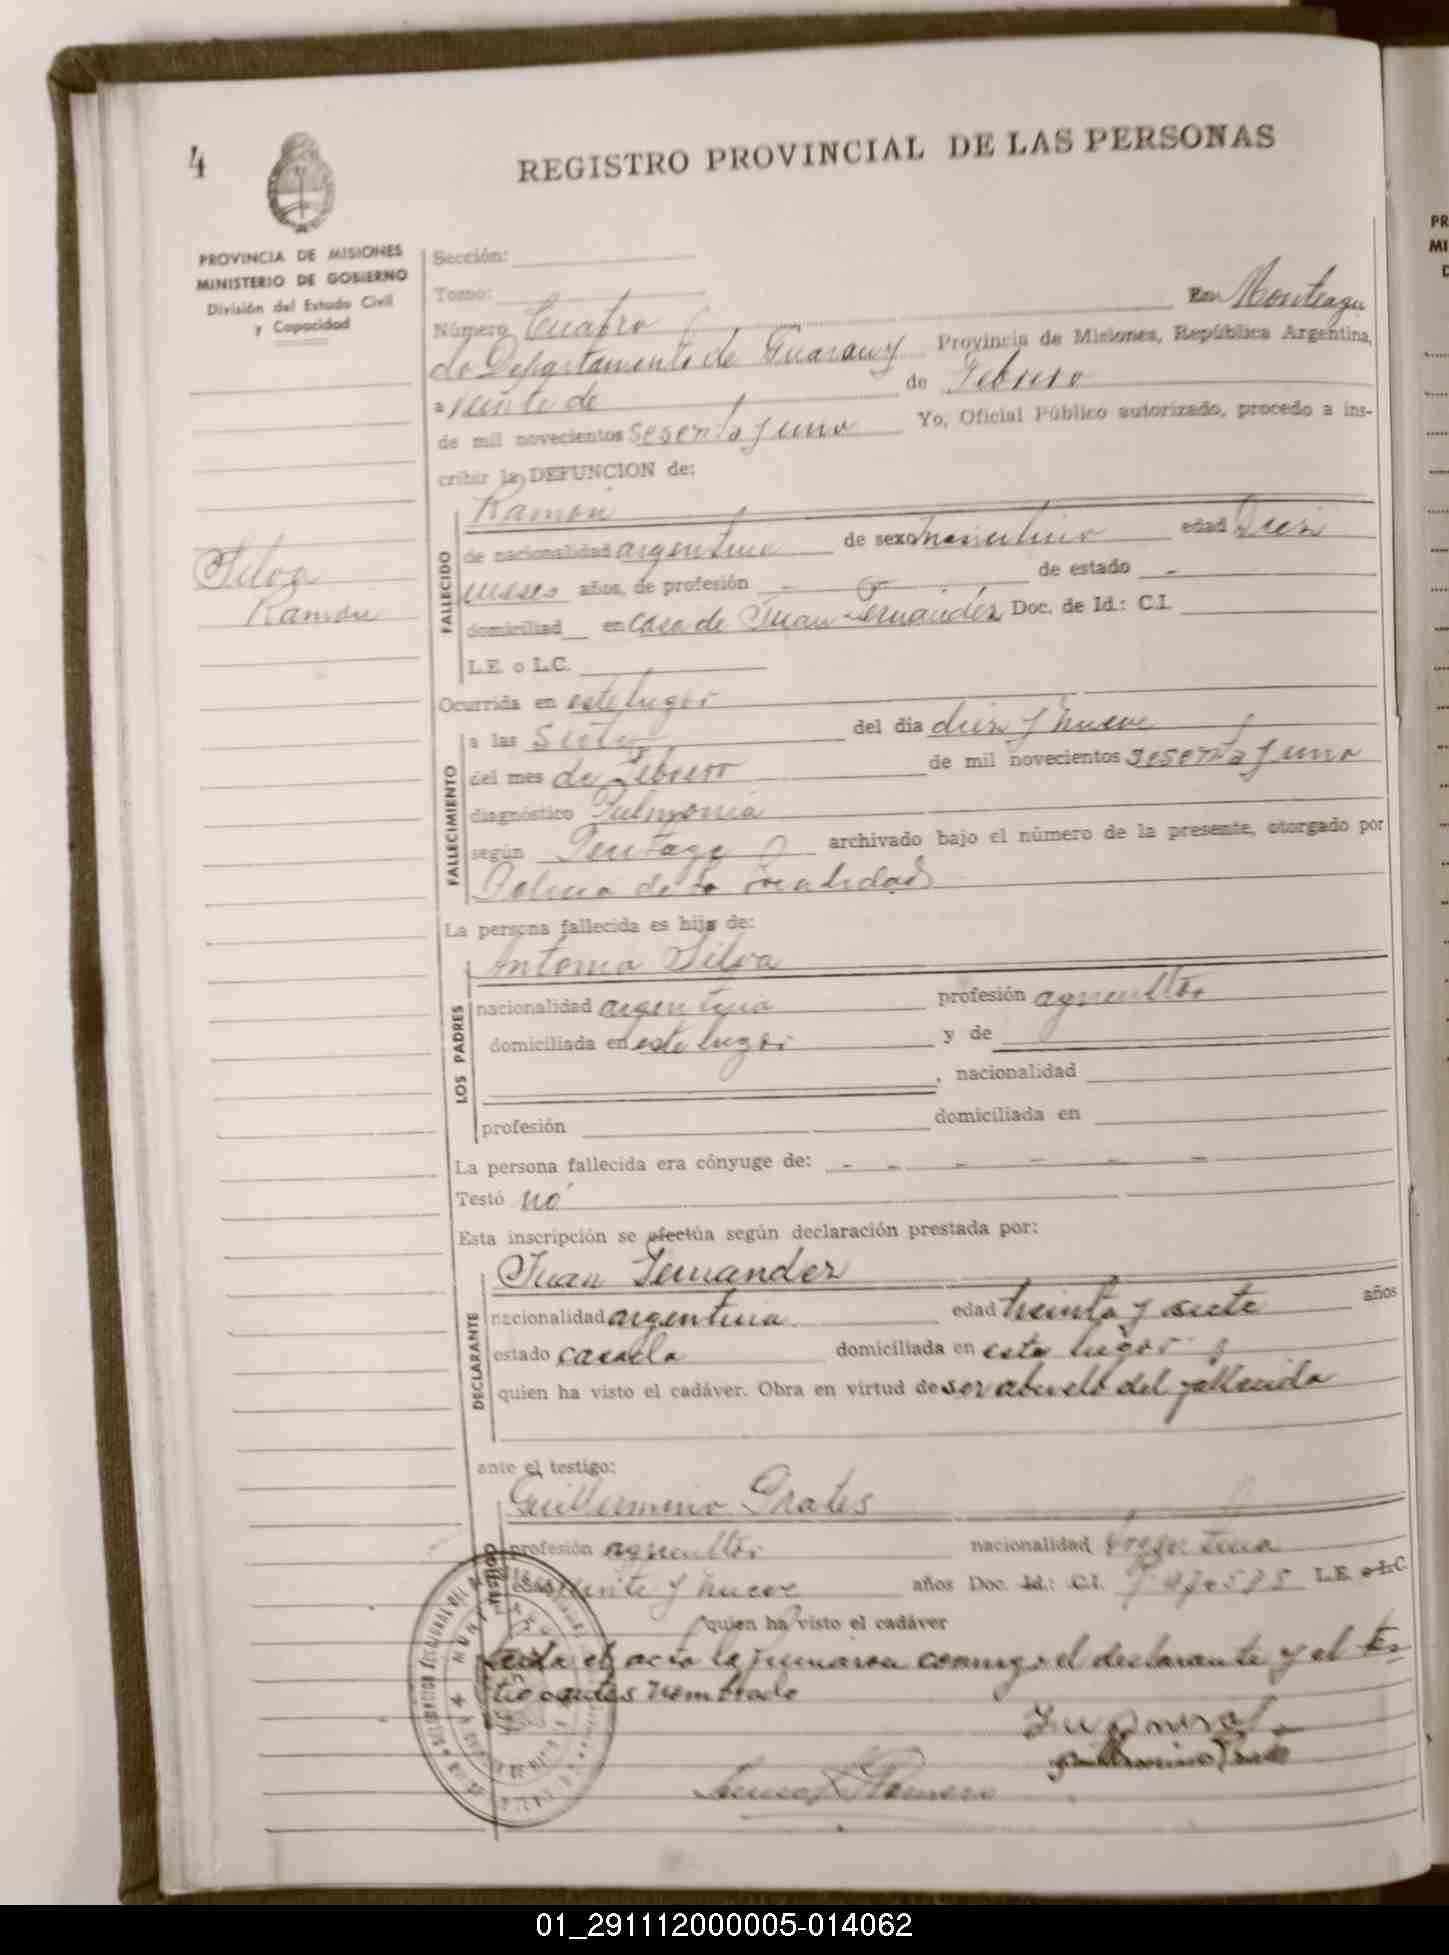 4
REGISTRO PROVINCIAL DE LAS PERSONAS
PROVINCIA DE MISIONES
MINISTERIO DE GOBIERNO
División del Estado Civil
y Capacidad
Silva
Ramón
Sección:
Tomo:
Número Cuatro En Monteagu
do Departamento de Guarany Provincia de Misiones, República Argentina,
a veinte de de Febrero
de mil novecientos sesenta y uno Yo, Oficial Público autorizado, procedo a ins-
cribir la DEFUNCION de:
FALLECIDO
Ramón
de nacionalidad argentino de sexo masculino edad Diez
meses años, de profesión - de estado -
domiciliad en casa de Juan Fernández Doc. de Id.: C.I.
L.E. o L.C.
Ocurrida en este lugar
FALLECIMIENTO
a las Siete del día diez y nueve
del mes de Febrero de mil novecientos sesenta y uno
diagnóstico Pulmonía
según archivado bajo el número de la presente, otorgado por
de la localidad
La persona fallecida es hijo de:
LOS PADRES
Antonia Silva
nacionalidad argentina profesión agricultor
domiciliada en este lugar y de
, nacionalidad
profesión domiciliada en
La persona fallecida era cónyuge de: - - - - - -
Testó no
Esta inscripción se efectúa según declaración prestada por:
DECLARANTE
Juan Fernandez
nacionalidad argentina edad treinta y siete años
estado casado domiciliada en este lugar y
quien ha visto el cadáver. Obra en virtud de ser abuelo del fallecido
ante el testigo:
TESTIGO
Guillermino Prates
profesión agricultor nacionalidad argentina
veinte y nueve años Doc. Id.: C.I. L.E. o L.C.
quien ha visto el cadáver
Leida el acta la firmaron conmigo el declarante y el tes
tigo antes nombrado
Guillermino Prates
Romero
01_291112000005-014062